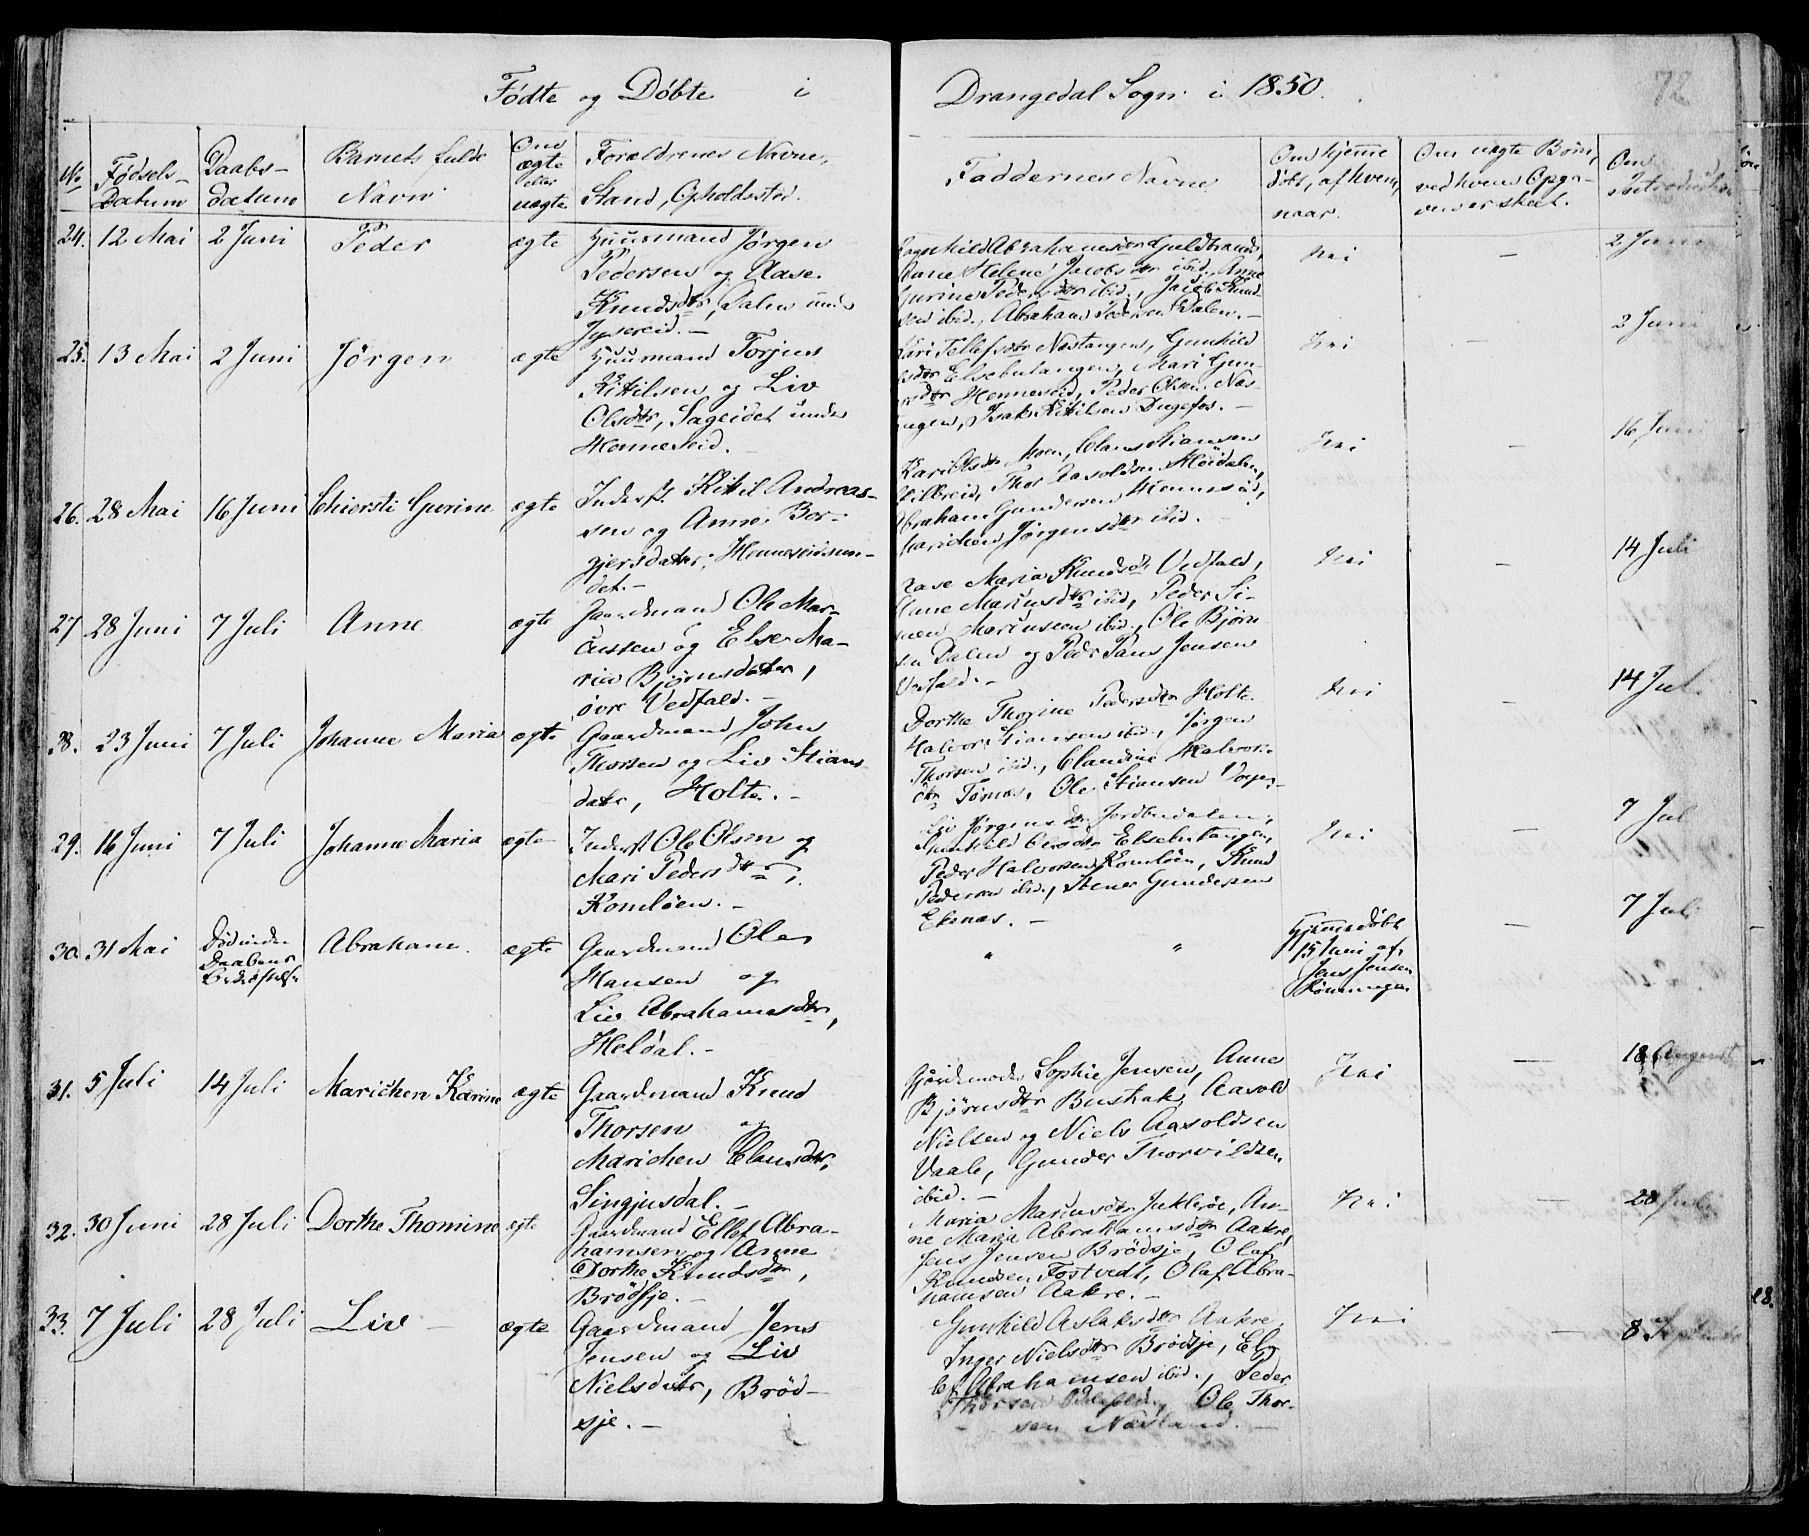 Fødte og Døbte i
Drangedal Sogn i 1850.
72
No
Fødsels-
Datum
Daabs-
datum
Barnets fulde
Navn
Om
ægte
eller
uægte
Forældrenes Navne,
Stand, Opholdssted.
Faddernes Navne
Om hjemme
døbt, af hvem,
naar.
Om uægte Børn,
ved hvem Opgi-
velsen er skeet.
Om
Introduction
24. 12 Mai 2 Juni Peder ægte
Huusmand Jørgen
Pedersen og Aase
Knudsdtr, Dalen under
Abrahamsdtr
Anne Helene Jacobsdtr ibid., Anne
Gurine Pedersdtr ibid., Jacob Knud-
sen ibid., Abraham Pedersen Dalen.-
Nei - 2 Juni
25. 13 Mai 2 Juni Jørgen ægte
Huusmand Torjus
Kittilsen og Liv
Olsdtr, Sageidet under
Henneseid.
Tellefsdtr Næstangen, Gunhild
Elsebutangen, Mari Gun-
dtr Henneseid, Peder Olsen Næs-
tangen, Isak Kittilsen Dugefos.-
Nei - 2 Juni
26. 28 Mai 16 Juni Chiersti Gurine ægte
Inderst Kittil Andreas-
sen og Anne Bor-
gjersdatter, Henneseidsun-
det.-
Kari Olsdtr Moen, Claus Stiansen
Thor Aasoldsen
Abraham Gundersen Henneseid,
Marichen Jørgensdtr ibid.-
Nei - 16 Juni
27 28 Juni 7 Juli Anne ægte
Gaardmand Ole Mar-
cussen og Else Ma-
ria Bjørnsdatter,
øvre Vedfald.-
Aase Maria Knudsdtr Vedfald,
Anne Mariusdtr ibid., Peder Si-
men Mariussen ibid., Ole Bjørn
sen Dalen og Peder Jensen
Vedfald.-
Nei - 14 Juli
28. 23 Juni 7 Juli Johanne Maria ægte
Gaardmand John
Thorsen og Liv Stians-
datr, Holte.-
Dorthe Thorine Pedersdtr Holte.
Halvor Stiansen ibid., Jørgen
Thorsen ibid., Claudine Halvors-
dtr Ole Stiansen
Nei - 14 Jul
29. 16 Juni 7 Juli Johanne Maria ægte
Inderst Ole Olsen og
Mari Pedersdtr,
Komløen.-
Jørgensdtr Jordbudalen,
Gunhild Elsebutangen,
Peder Halvorsen Komløen, Knud
Pedersen ibid., Stener Gundersen
Ekenæs.-
Nei - 7 Jul
30. 31 Mai Død inden
Daabens
Bekræftelse
Abraham. ægte
Gaardmand Ole
Hansen og
Liv Abrahamsdtr,
Heldal.-
" "
Hjemmedøbt
15 Juni af
Jens Jensen
- 7 Juli
31. 5 Juli 14 Juli Marichen Karine ægte
Gaardmand Knud
Thorsen og
Marichen Clausdtr,
Singjusdal.-
Gjordemoder Sophie Jensen, Anne
Bjørnsdtr Bustrak, Aasold
Nielsen og Niels Aasoldsen
Vaale, Gunder Thorvildsen
ibid.-
Nei - 18 August
32. 30 Juni 28 Juli Dorthe Thomine ægte
Gaardmand Ellef Abra-
hamsen og Anne
Dorthe Knudsdtr,
Brødsje.-
Maria Mariusdtr An-
ne Maria Abrahamsdtr Aakre,
Jens Jensen Brødsje, Olaf
Knudsen Tostvedt, Olaf Abra-
hamsen Aakre.-
Nei - 28 Juli
33. 7 Juli 28 Juli Liv - ægte
Gaardmand Jens
Jensen og Liv
Nielsdatr, Brød-
sje.-
Gunhild Aslaksdtr Aakre,
Inger Nielsdtr Brødsje, El-
lef Abrahamsen ibid., Peder
Thorsen Ole Thor-
sen Næsland.-
Nei - 8 September